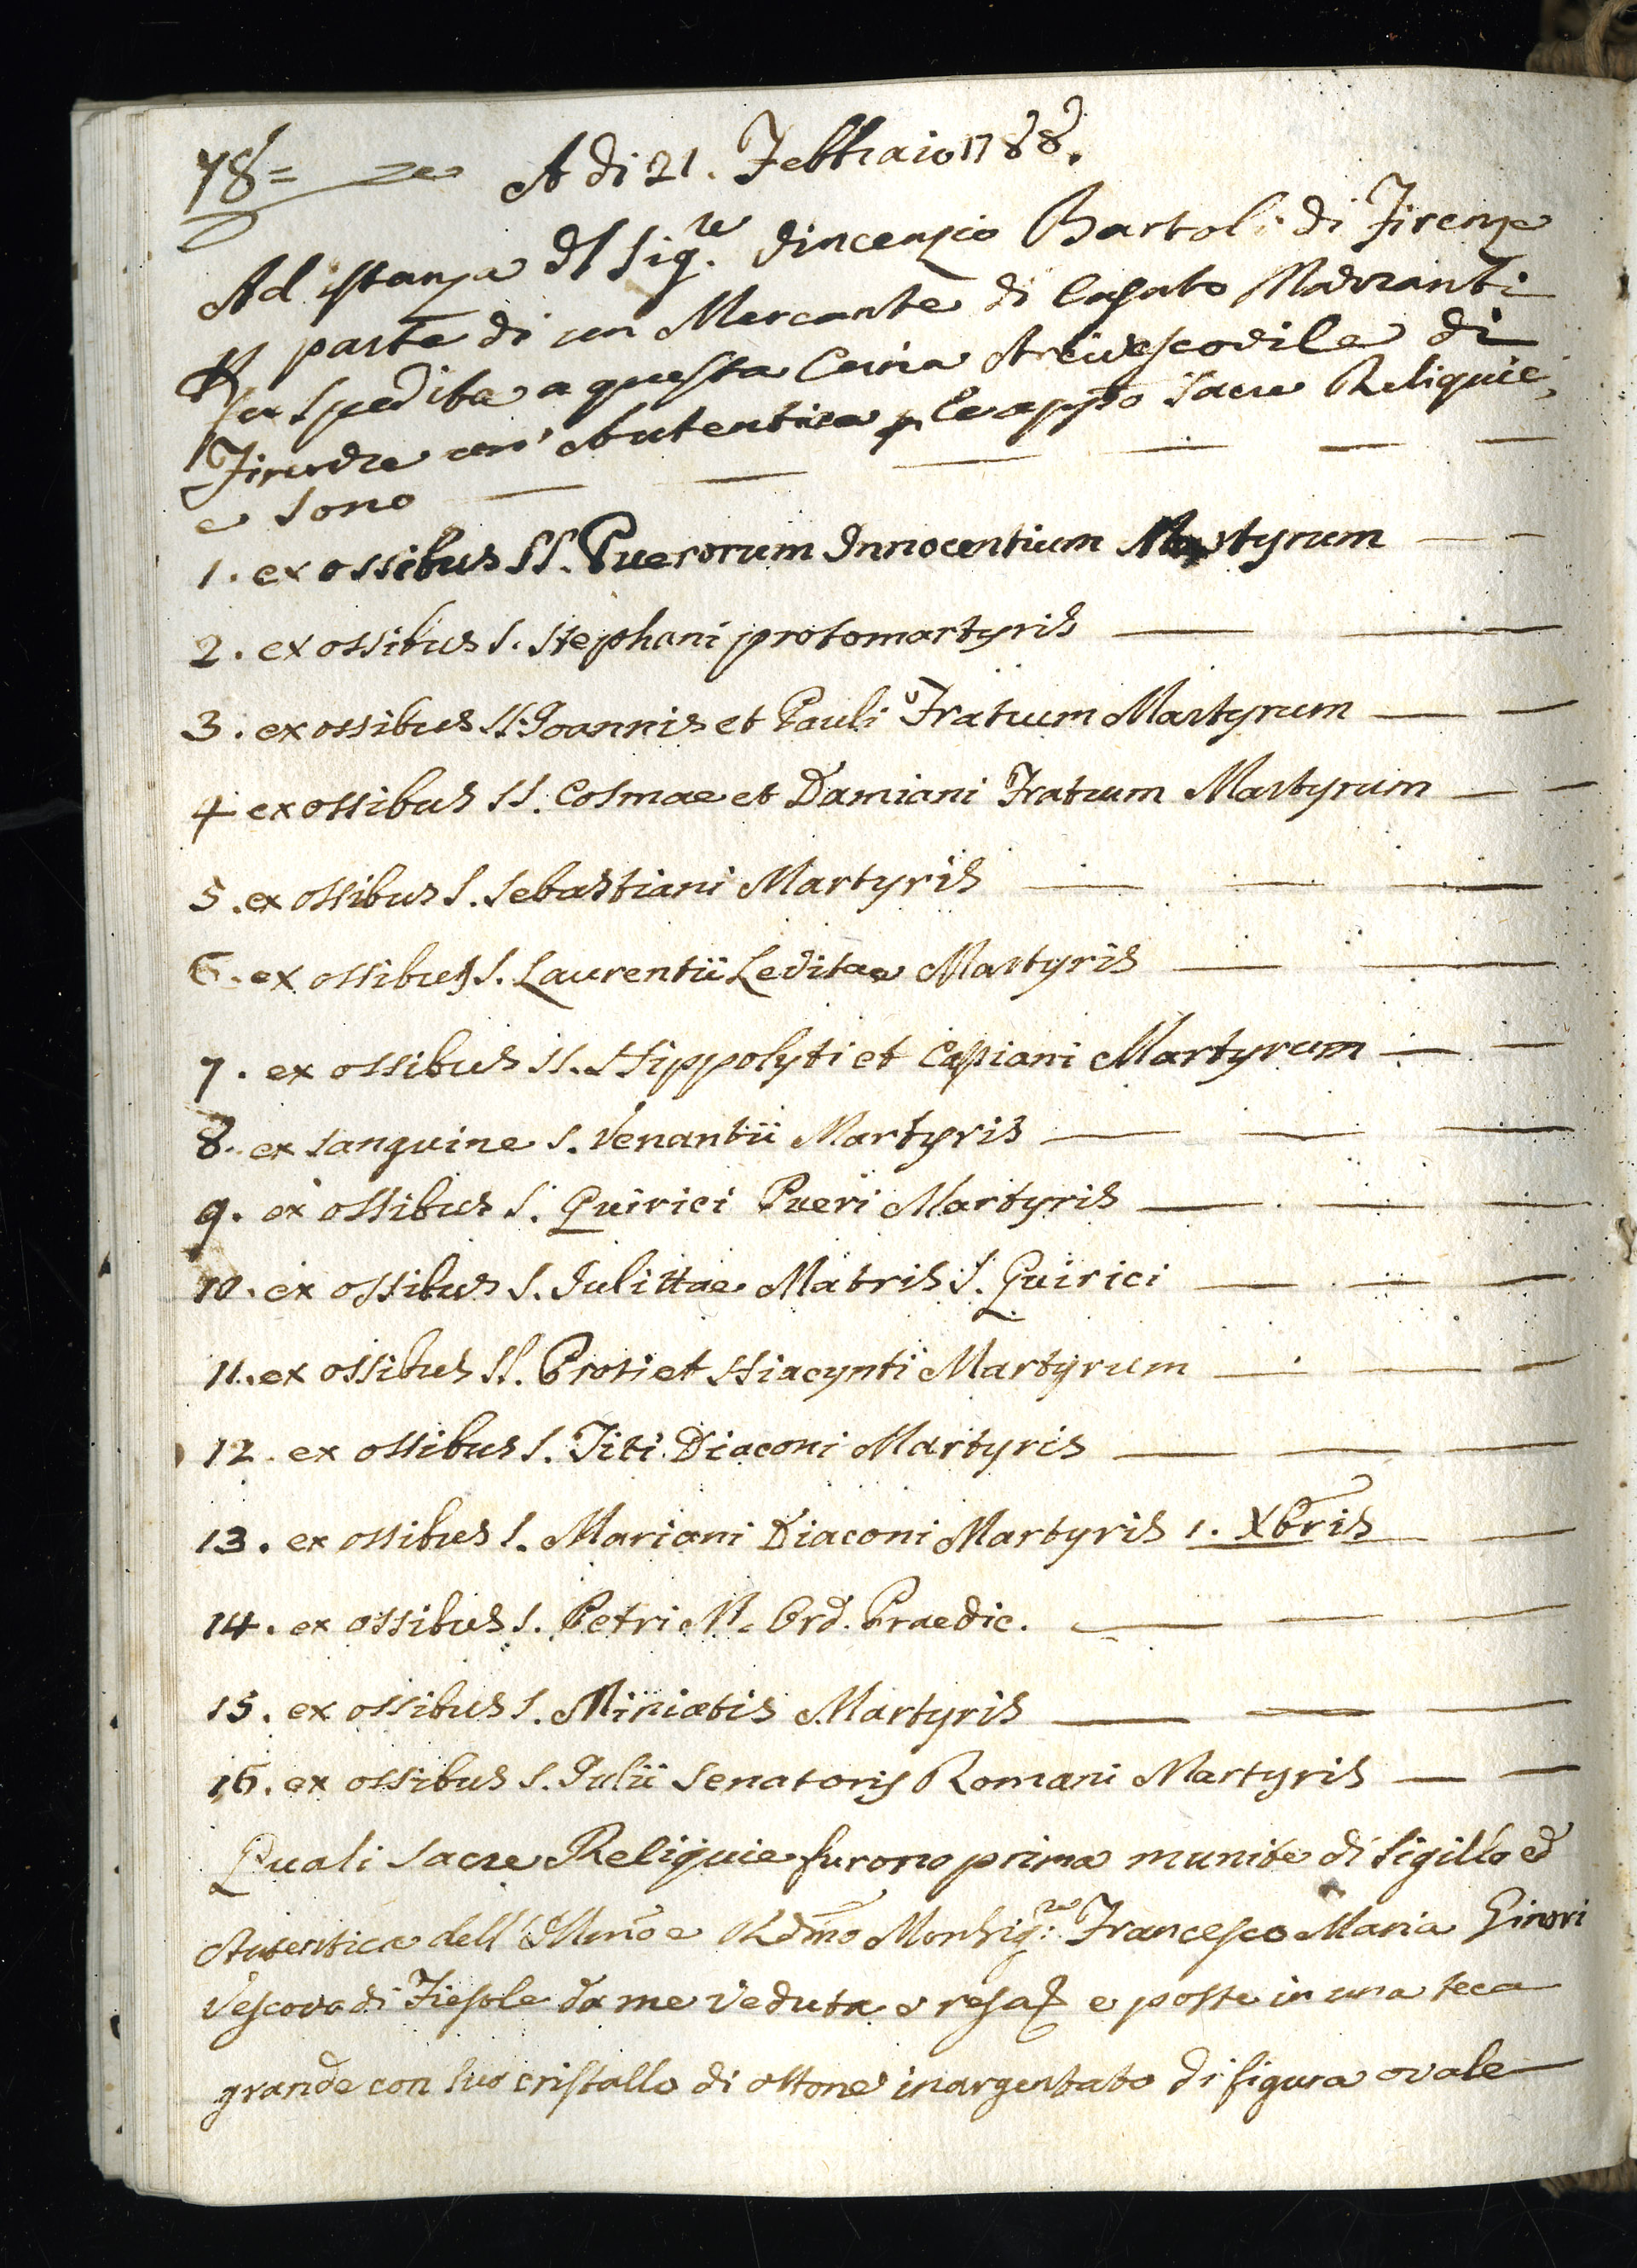 78=
A di 21. Febbraio 1788.
Ad istanza del Sig.re Vincenzio Bartoli di Firenze
p parte di un Mercante di Casato Marzanti
fu spedita a questa Curia Arcivescovile di
Firenze con Autentica p le app.o Sacre Reliquie,
e sono
1. ex ossibus SS. Puerorum Innocentium Martyrum
2. ex ossibus S. Stephani protomartyris
3. ex ossibus SS. Joannis et Pauli Fratrum Martyrum
4 ex ossibus SS. Cosmae et Damiani Fratrum Martyrum
5. ex ossibus S. Sebastiani Martyris
6. ex ossibus S. Laurentii Levitae Martyris
7. ex ossibus SS. Hippolyti et Cassiani Martyrum
8. ex sanguine S. Venantii Martyris
9. ex ossibus S. Quirici Pueri Martyris
10. ex ossibus S. Julittae Matris S. Quirici
11. ex ossibus SS. Proti et Hiacynti Martyrum
12. ex ossibus S. Titi Diaconi Martyris
13. ex ossibus S. Mariani Diaconi Martyris 1. Xbris
14. ex ossibus S. Petri M. Ord. Praedic.
15. ex ossibus S. Miniatis Martyris
16. ex ossibus S. Julii Senatoris Romani Martyris
Quali Sacre Reliquie furono prima munite di Sigillo ed
Autentica dell' Illmo e Rdmo Monsig.re Francesco Maria Ginori
Vescovo di Fiesole da me veduta e resa e poste in una teca
grande con suo cristallo di ottone inargentato di figura ovale